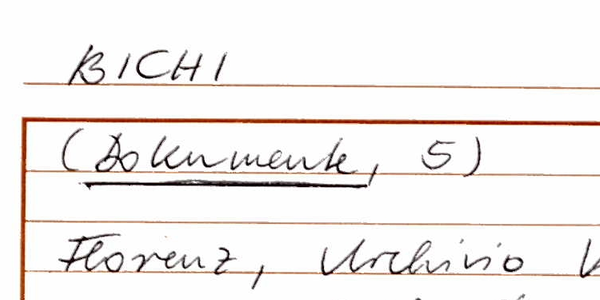 BICHI
(Dokumente, 5)
Florenz, Archivio